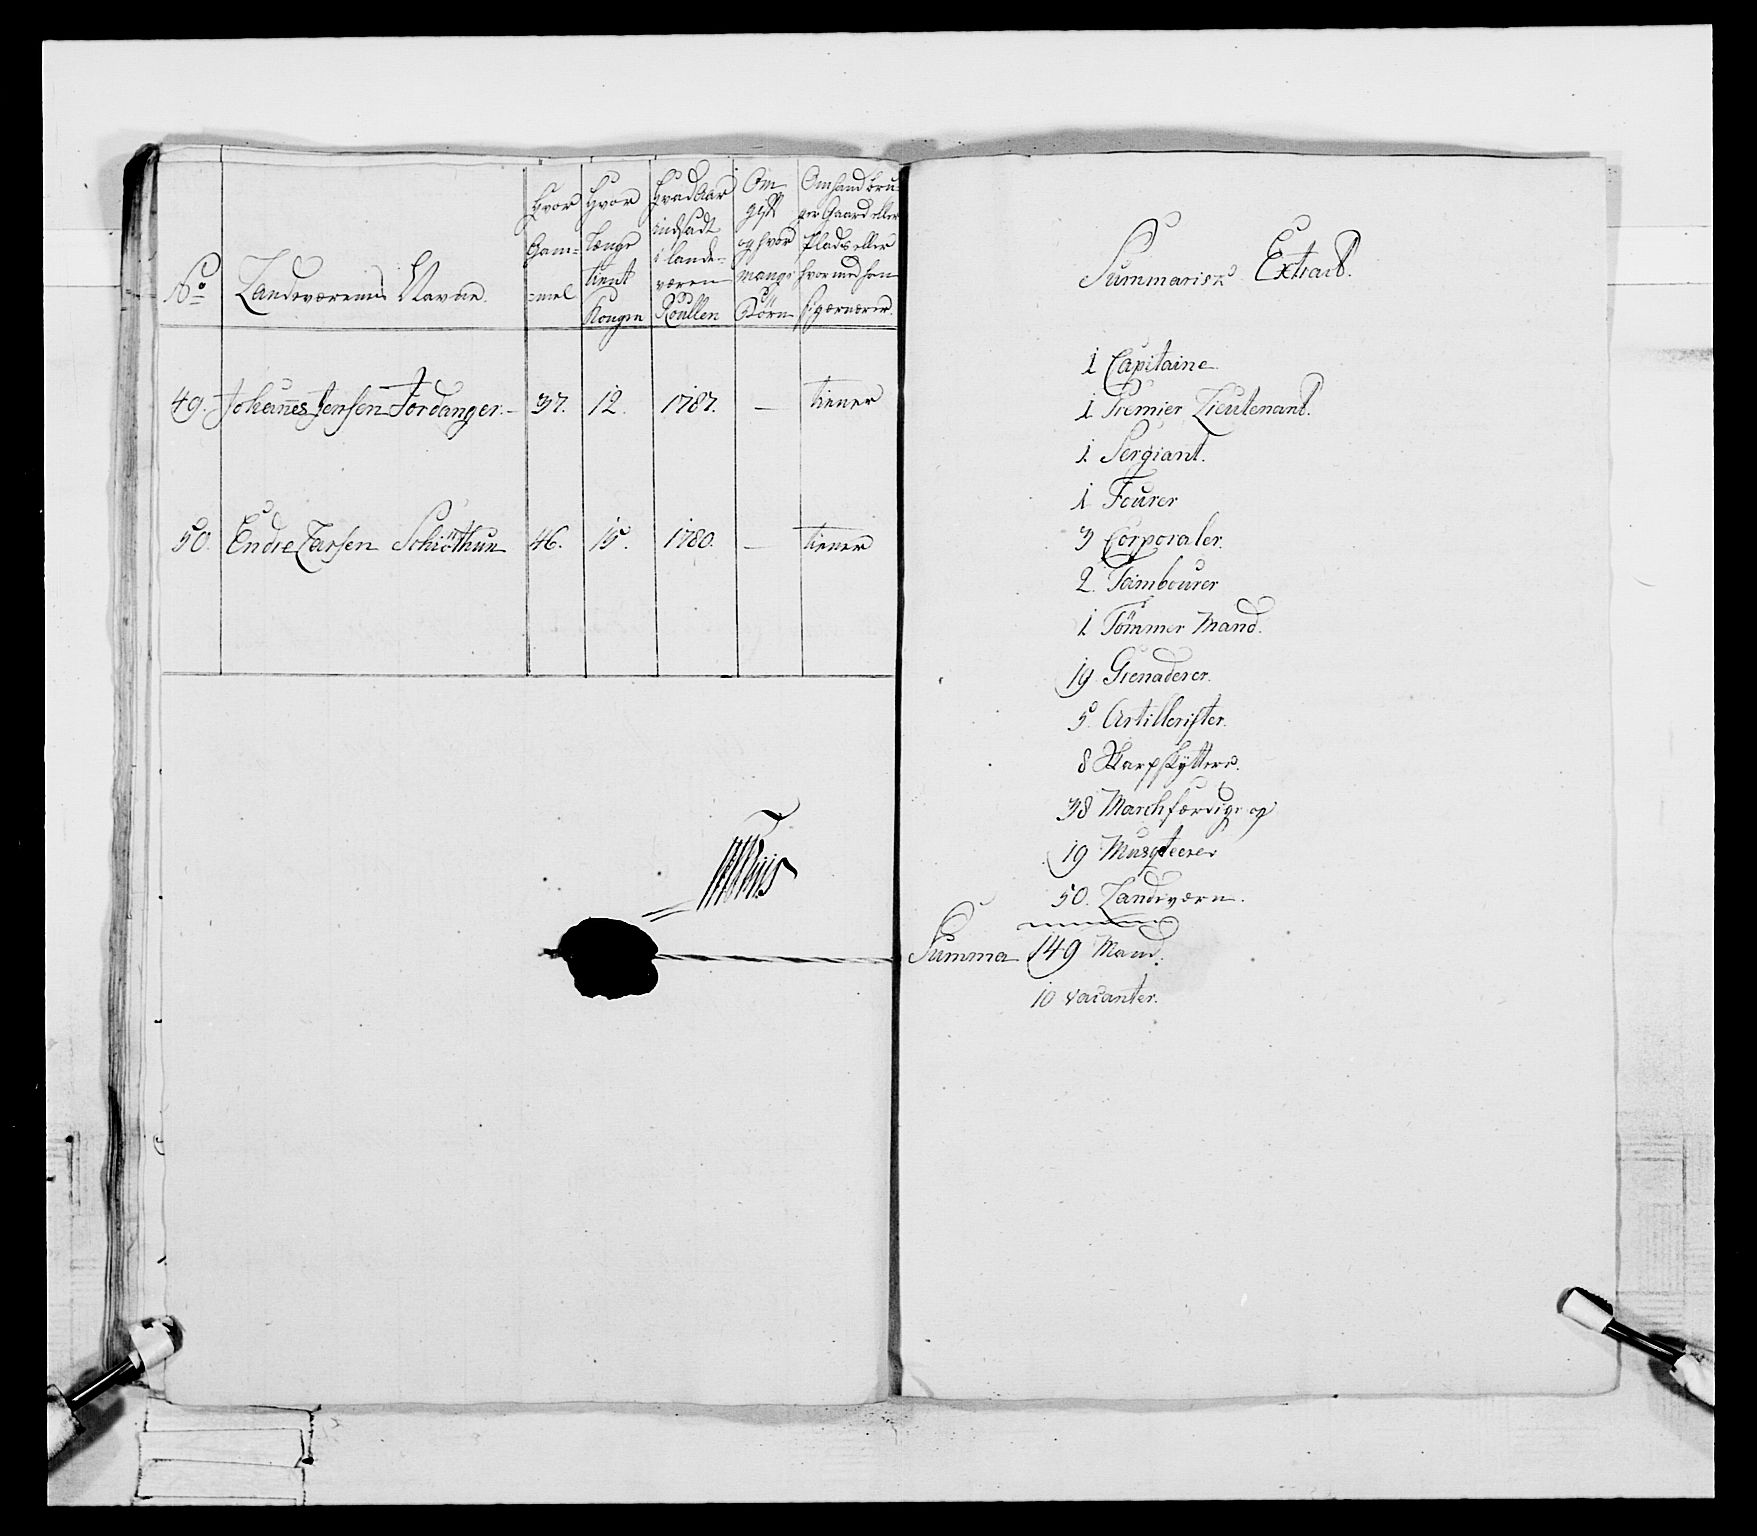 No Landeværenes Navne.
Hvor Gam= =mel
Hvor længe tient Kongen
Hvad Aar indsadt i lande= væren Roullen
Om gift og hvor mange Børn
Om hand bru= ger Gaard eller Plads eller hvormed han sig ernærer.
49. Johannes Jensen Fordanger. 37. 12. 1787. — tiener
50. Endre Larsen Schiöthun 46. 15. 1780. — tiener
Summarisk Extract.
1 Capitaine
1 Premier Lieutenant.
1. Sergiant.
1 Fourer
3 Corporaler.
2. Tambourer
1 Tömmer Mand.
19 Grenaderer.
5. Artillerister.
8 Skarpskyttere.
38 Marchfærdige og
19 Musqteerer
50. Landeværn.
Summa 149 Mand.
10 vacanter.